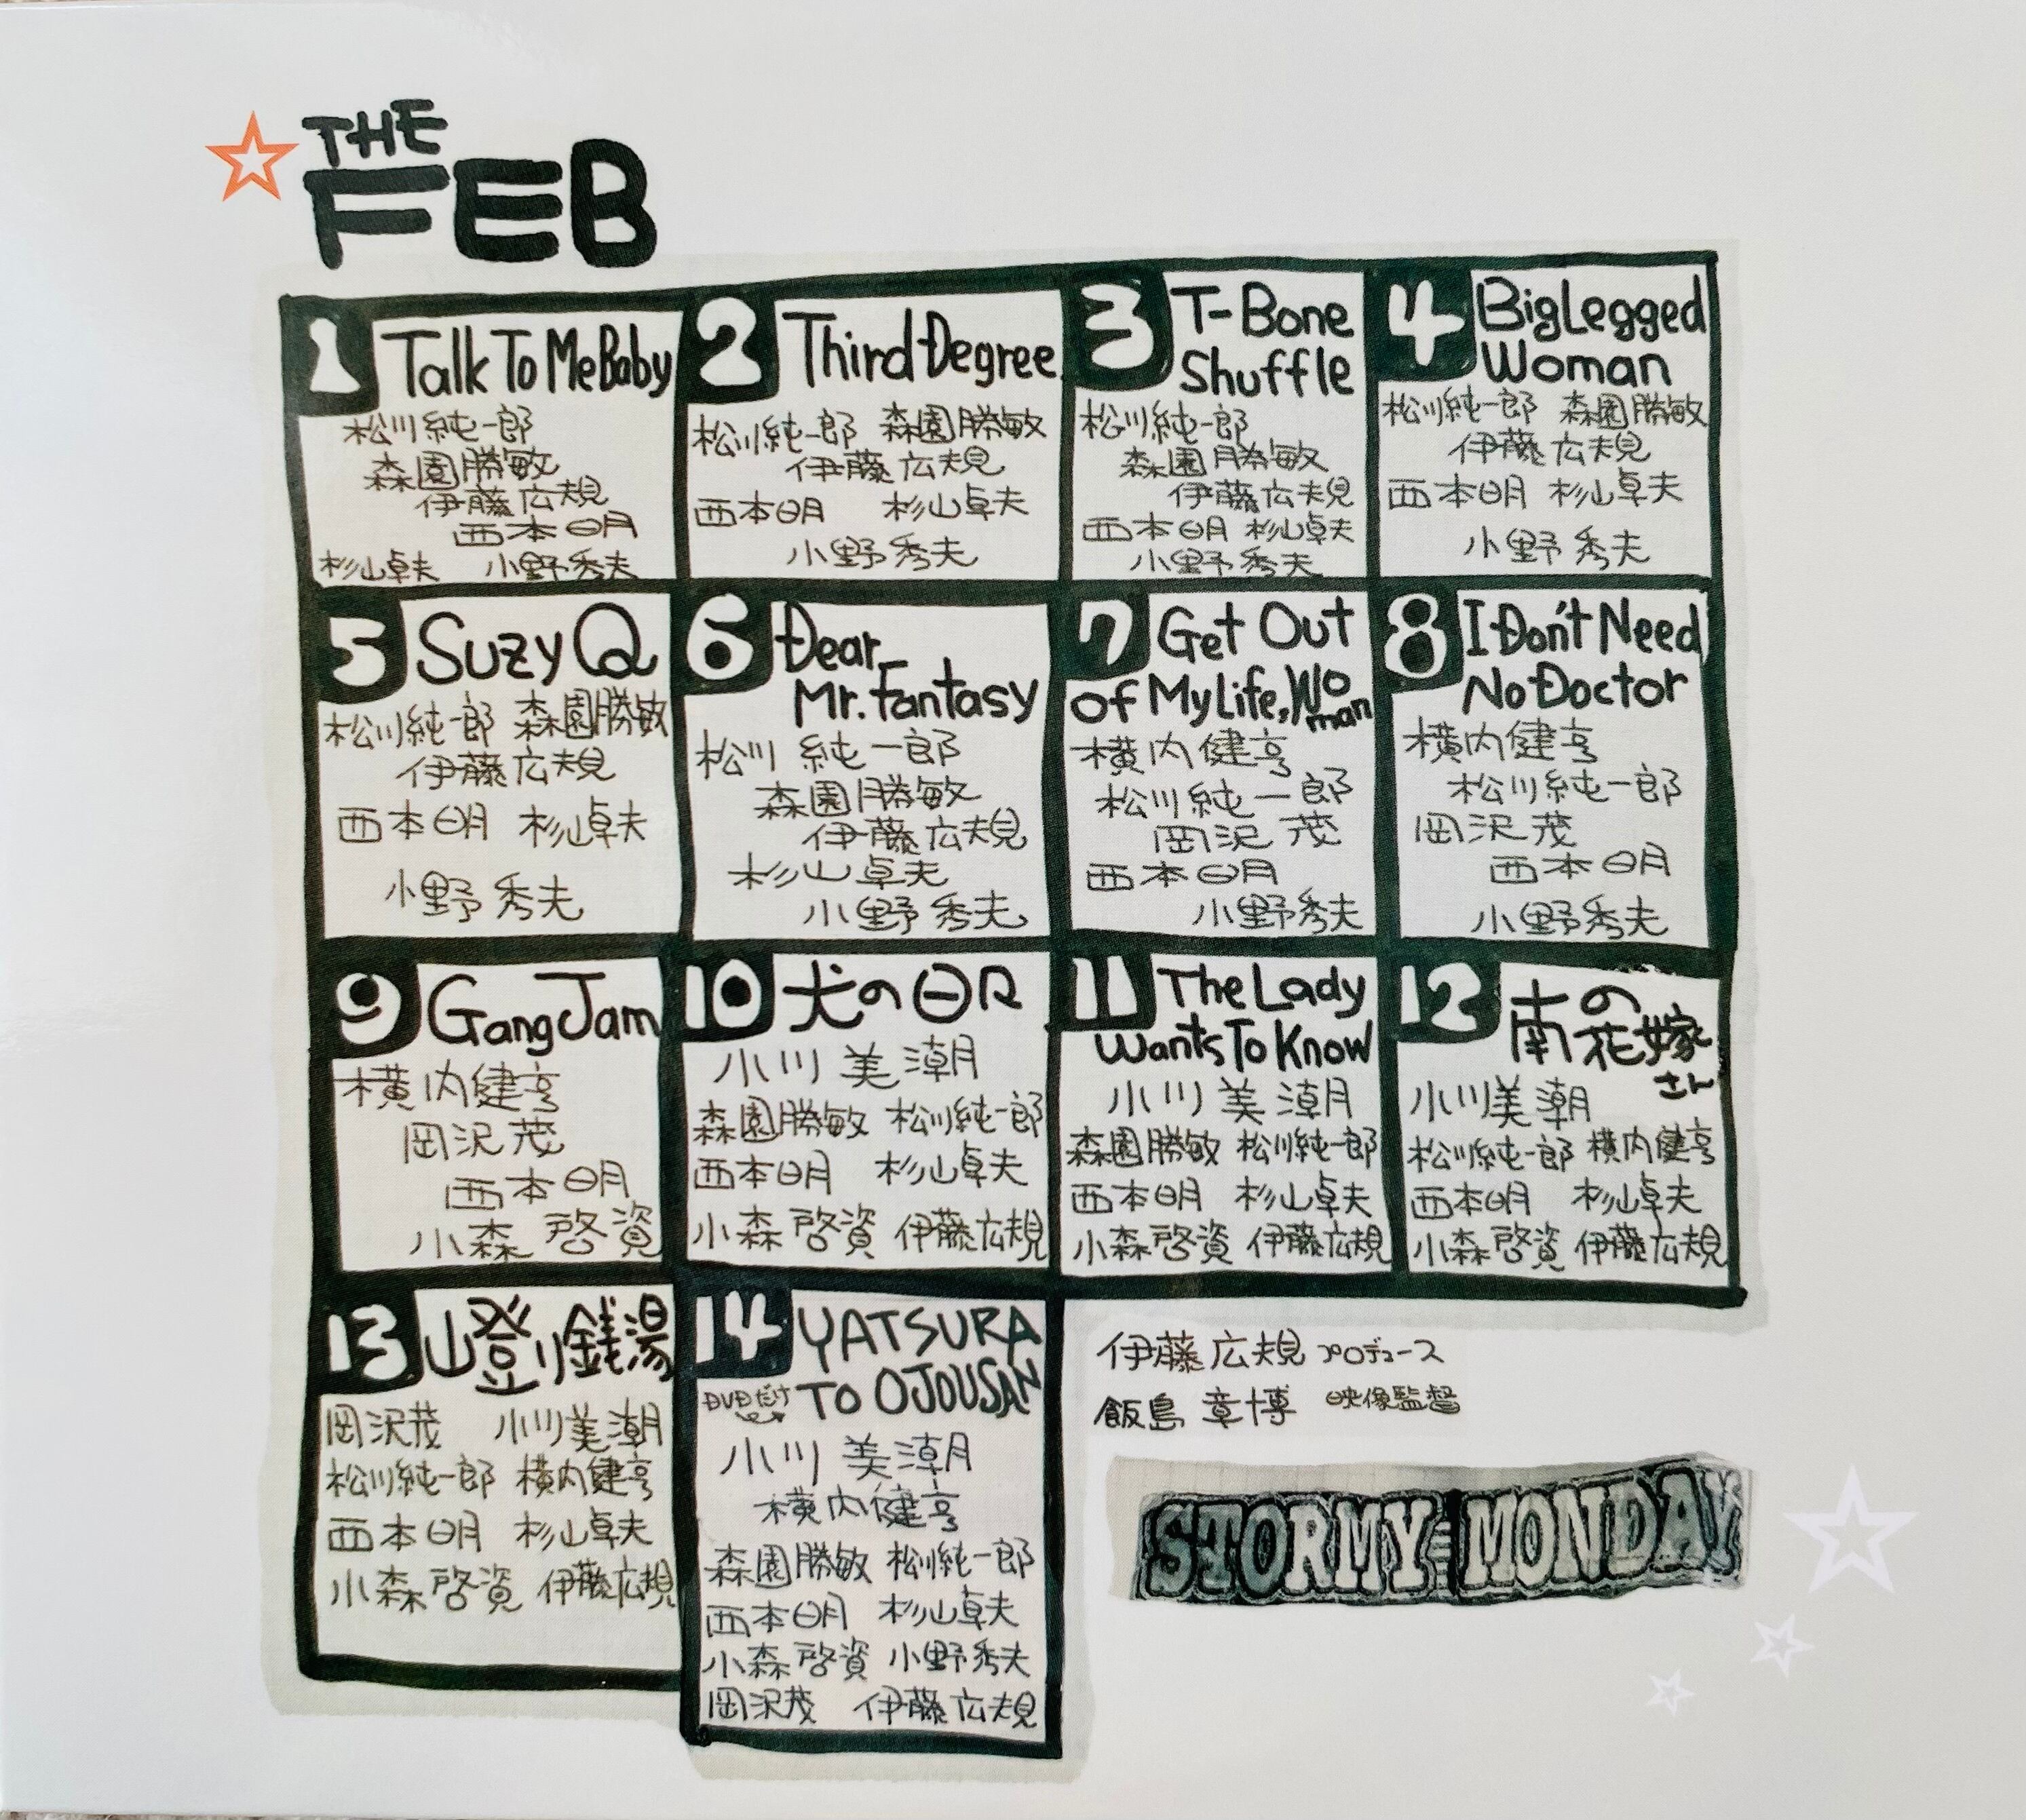 THE
FEB
1 Talk To Me Baby
松川純一郎
森園勝敏
伊藤広規
西本明
杉山卓夫 小野秀夫
2 Third Degree
松川純一郎 森園勝敏
伊藤広規
西本明 杉山卓夫
小野秀夫
3 T-Bone
Shuffle
松川純一郎
森園勝敏
伊藤広規
西本明 杉山卓夫
小野秀夫
4 Big Legged
Woman
松川純一郎 森園勝敏
伊藤広規
西本明 杉山卓夫
小野秀夫
5 Suzy Q
松川純一郎 森園勝敏
伊藤広規
西本明 杉山卓夫
小野秀夫
6 Dear
Mr. Fantasy
松川純一郎
森園勝敏
伊藤広規
杉山卓夫
小野秀夫
7 Get Out
of My Life, Wo
man
横内健亨
松川純一郎
岡沢茂
西本明
小野秀夫
8 I Don't Need
No Doctor
横内健亨
松川純一郎
岡沢茂
西本明
小野秀夫
9 Gang Jam
横内健亨
岡沢茂
西本明
小森啓資
10 犬の日々
小川美潮
森園勝敏 松川純一郎
西本明 杉山卓夫
小森啓資 伊藤広規
11 The Lady
Wants To Know
小川美潮
森園勝敏 松川純一郎
西本明 杉山卓夫
小森啓資 伊藤広規
12 南の
花嫁
さん
小川美潮
松川純一郎 横内健亨
西本明 杉山卓夫
小森啓資 伊藤広規
13 山登り銭湯
岡沢茂 小川美潮
松川純一郎 横内健亨
西本明 杉山卓夫
小森啓資 伊藤広規
14 YATSURA
DVDだけ TO OJOUSAN
小川美潮
横内健亨
森園勝敏 松川純一郎
西本明 杉山卓夫
小森啓資 小野秀夫
岡沢茂 伊藤広規
伊藤広規 プロデュース
飯島章博 映像監督
STORMY MONDAY